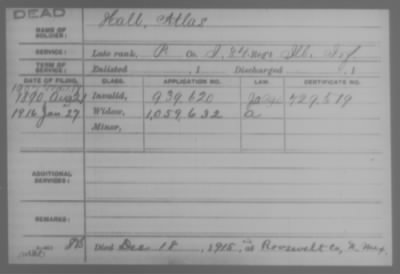 DEAD
NAME OF SOLDIER: Hall, Atlas
SERVICE: Late rank, P Co. I, 24 Reg't Ill. Inf.
TERM OF SERVICE: Enlisted , 1 Discharged , 1
DATE OF FILING. CLASS. APPLICATION NO. LAW. CERTIFICATE NO.
1890 Aug 21 Invalid, 939,620 729,519
1916 Jan 27 Widow, 1,059,632 a
Minor,
ADDITIONAL SERVICES:
REMARKS:
Died Dec 18, 1915, at Roosevelt Co, N. Mex.